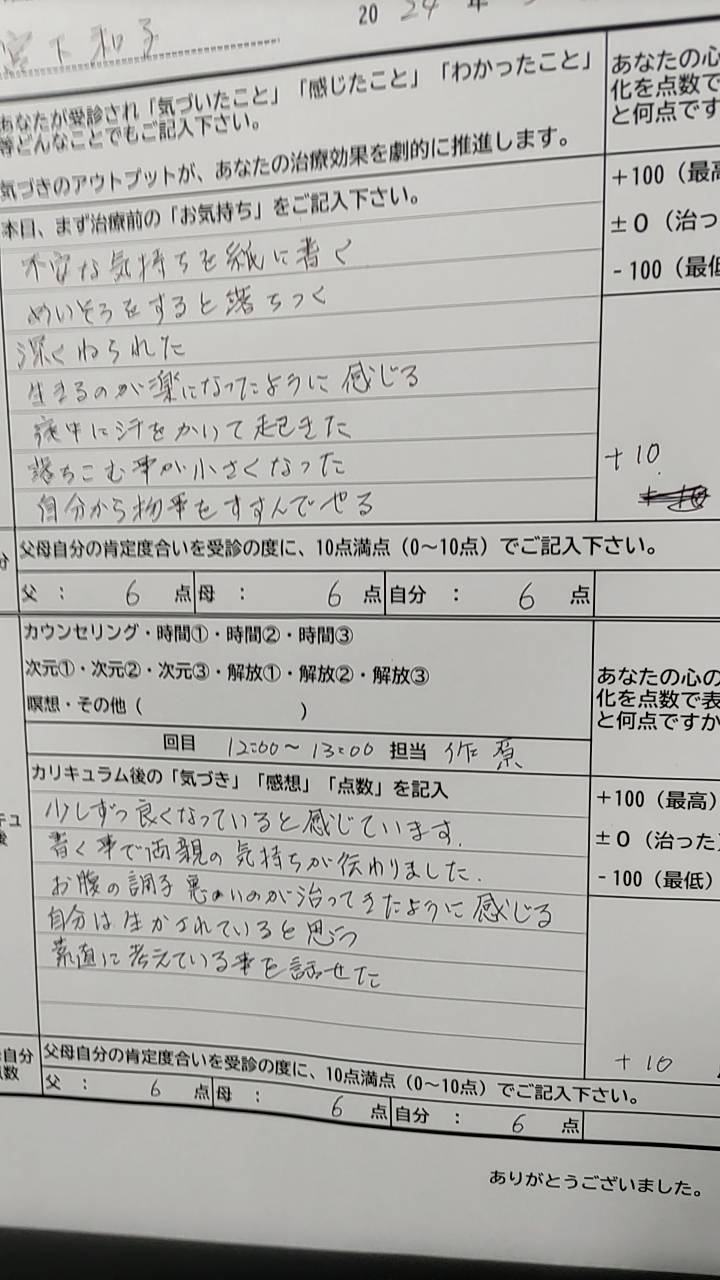 宮下和子
2024年
あなたが受診され「気づいたこと」「感じたこと」「わかったこと」
等どんなことでもご記入下さい。
気づきのアウトプットが、あなたの治療効果を劇的に推進します。
あなたの心
化を点数で
と何点です
本日、まず治療前の「お気持ち」をご記入下さい。
+100（最高
±0（治っ
-100（最低
不安な気持ちを紙に書く
めいそうをすると落ちつく
深くねられた
生きるのが楽になったように感じる
夜中に汗をかいて起きた
落ちこむ事が小さくなった
自分から物事をすすんでやる
+10
分
父母自分の肯定度合いを受診の度に、10点満点（0～10点）でご記入下さい。
父 ： 6 点 母 ： 6 点 自分 ： 6 点
カウンセリング・時間①・時間②・時間③
次元①・次元②・次元③・解放①・解放②・解放③
瞑想・その他（ ）
あなたの心の
化を点数で表
と何点ですか
回目 12:00～13:00 担当 作原
カリキュラム後の「気づき」「感想」「点数」を記入
+100（最高）
±0（治った）
-100（最低）
キュ
後
少しずつ良くなっていると感じています.
書く事で両親の気持ちが伝わりました.
お腹の調子悪いのが治ってきたように感じる
自分は生かされていると思う
素直に考えている事を話せた
+10
自分
点数
父母自分の肯定度合いを受診の度に、10点満点（0～10点）でご記入下さい。
父 ： 6 点 母 ： 6 点 自分 ： 6 点
ありがとうございました。